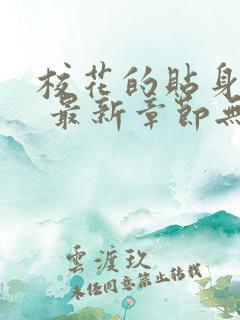 校花的貼身
最新章節無
雲渡玖
未經同意禁止轉載